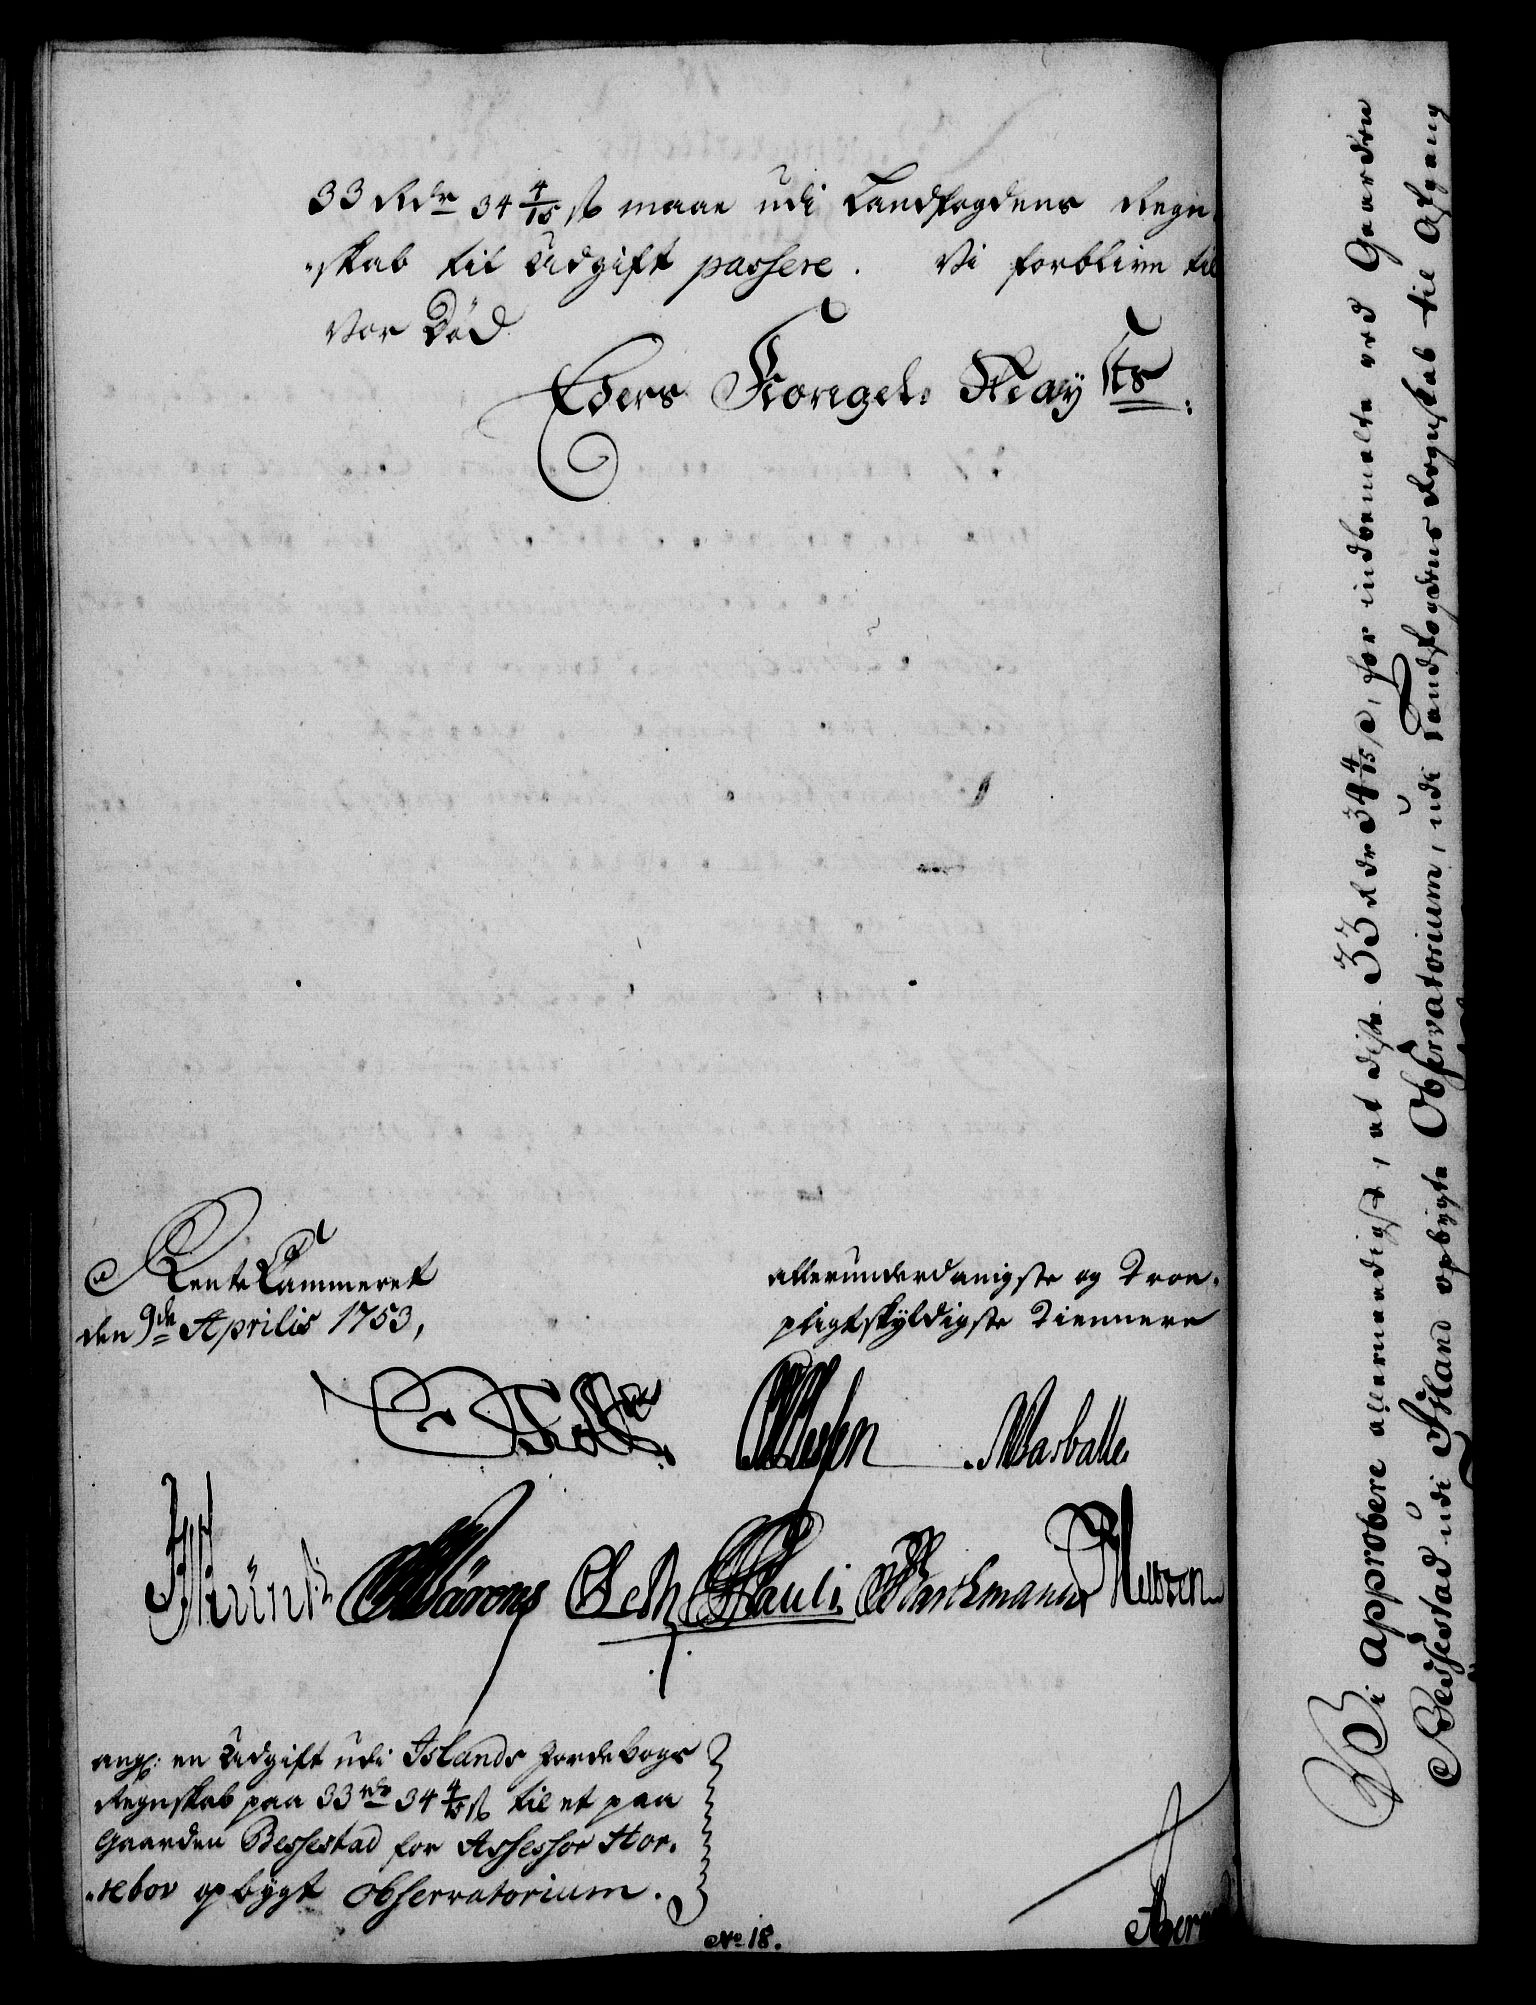 33 Rdr 34 4/15 ß maae udi Landfogdens Regn-
"skab til Udgift passere. Vi forblive til
vor Død
Eders Kongel. Mayts.
RenteKammeret
den 9de Aprilis 1753,
allerunderdanigste og Troe-
pligtskyldigste Tiennere
Marballe.
Pauli
ang: en Udgift udi Islands Jordebogs
Regnskab paa 33 rdr 34 4/15 ß til et paa
Gaarden Bessestad for Assessor Hor-
"rebov opbygt Observatorium.
No. 18.
Vi approbere allernaadigst, at disse 33 Rdr 34 4/15 ß, for indbemelte ved Gaarden
Bessestad udi Island opbygte Observatorium, udi Landfogdens Regnskab til Afgang